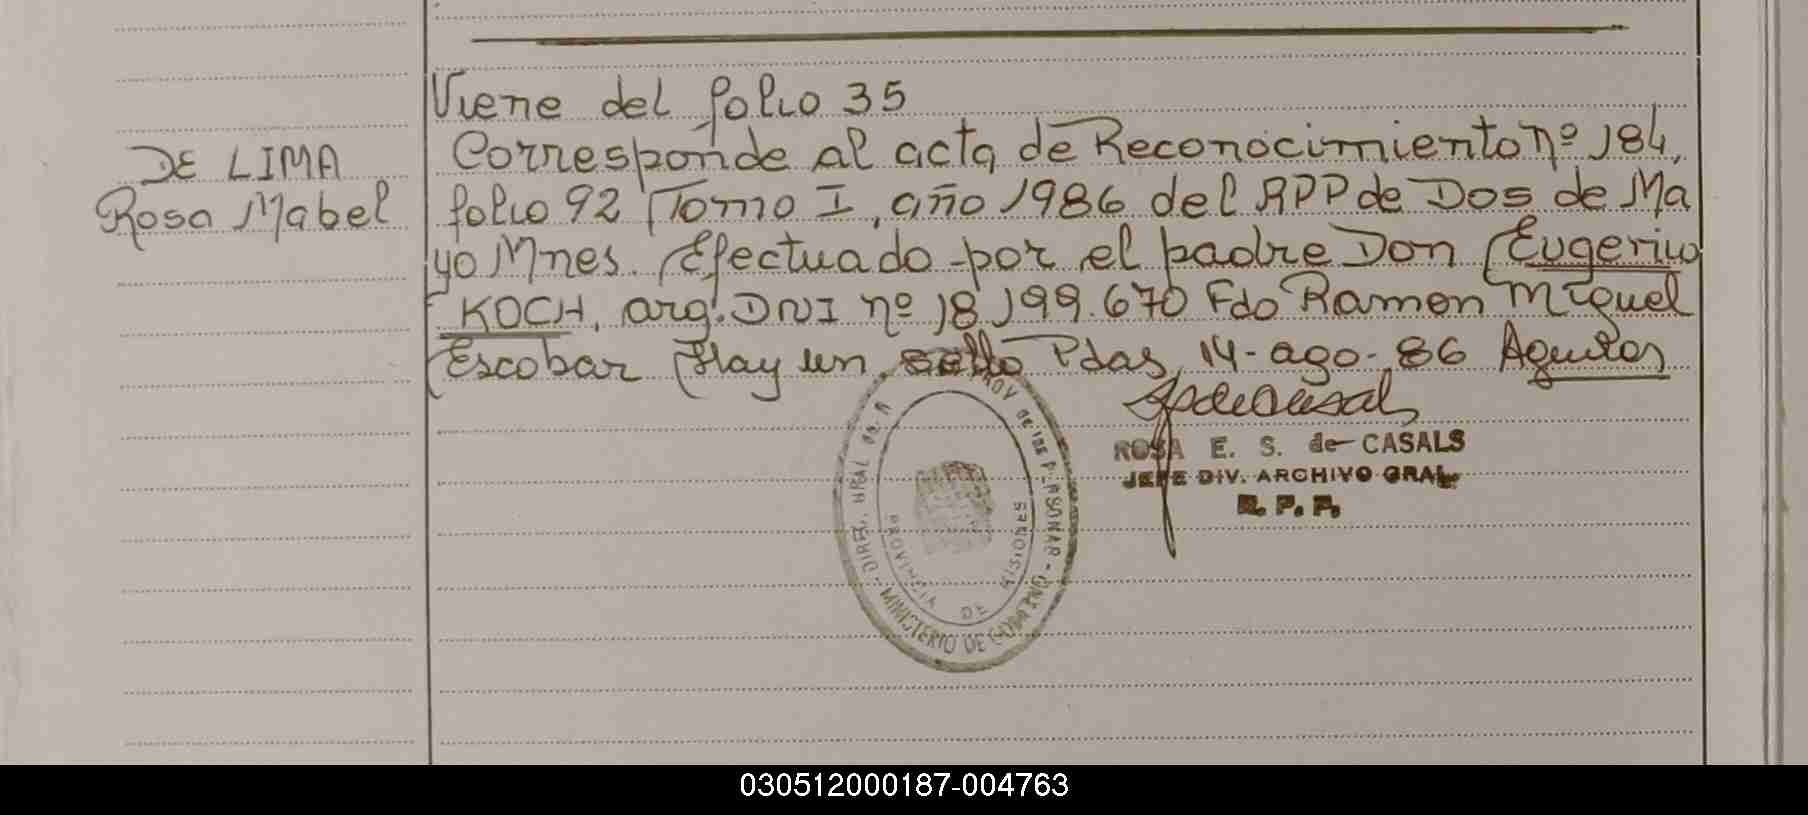 Viene del folio 35
DE LIMA
Rosa Mabel
Corresponde al acta de Reconocimiento nº 184,
folio 92 Tomo I, año 1986 del RPP de Dos de Ma
yo Mnes. Efectuado por el padre Don Eugenio
KOCH, arg. DNI nº 18.199.670 Fdo Ramon Miguel
Escobar Hay un sello Pdas, 14-ago-86 Aguilar
ROSA E. S. de CASALS
JEFE DIV. ARCHIVO GRAL
R. P. P.
PROV. DE LAS PERSONAS - MINISTERIO DE GOBIERNO
PROVINCIA DE MISIONES
030512000187-004763